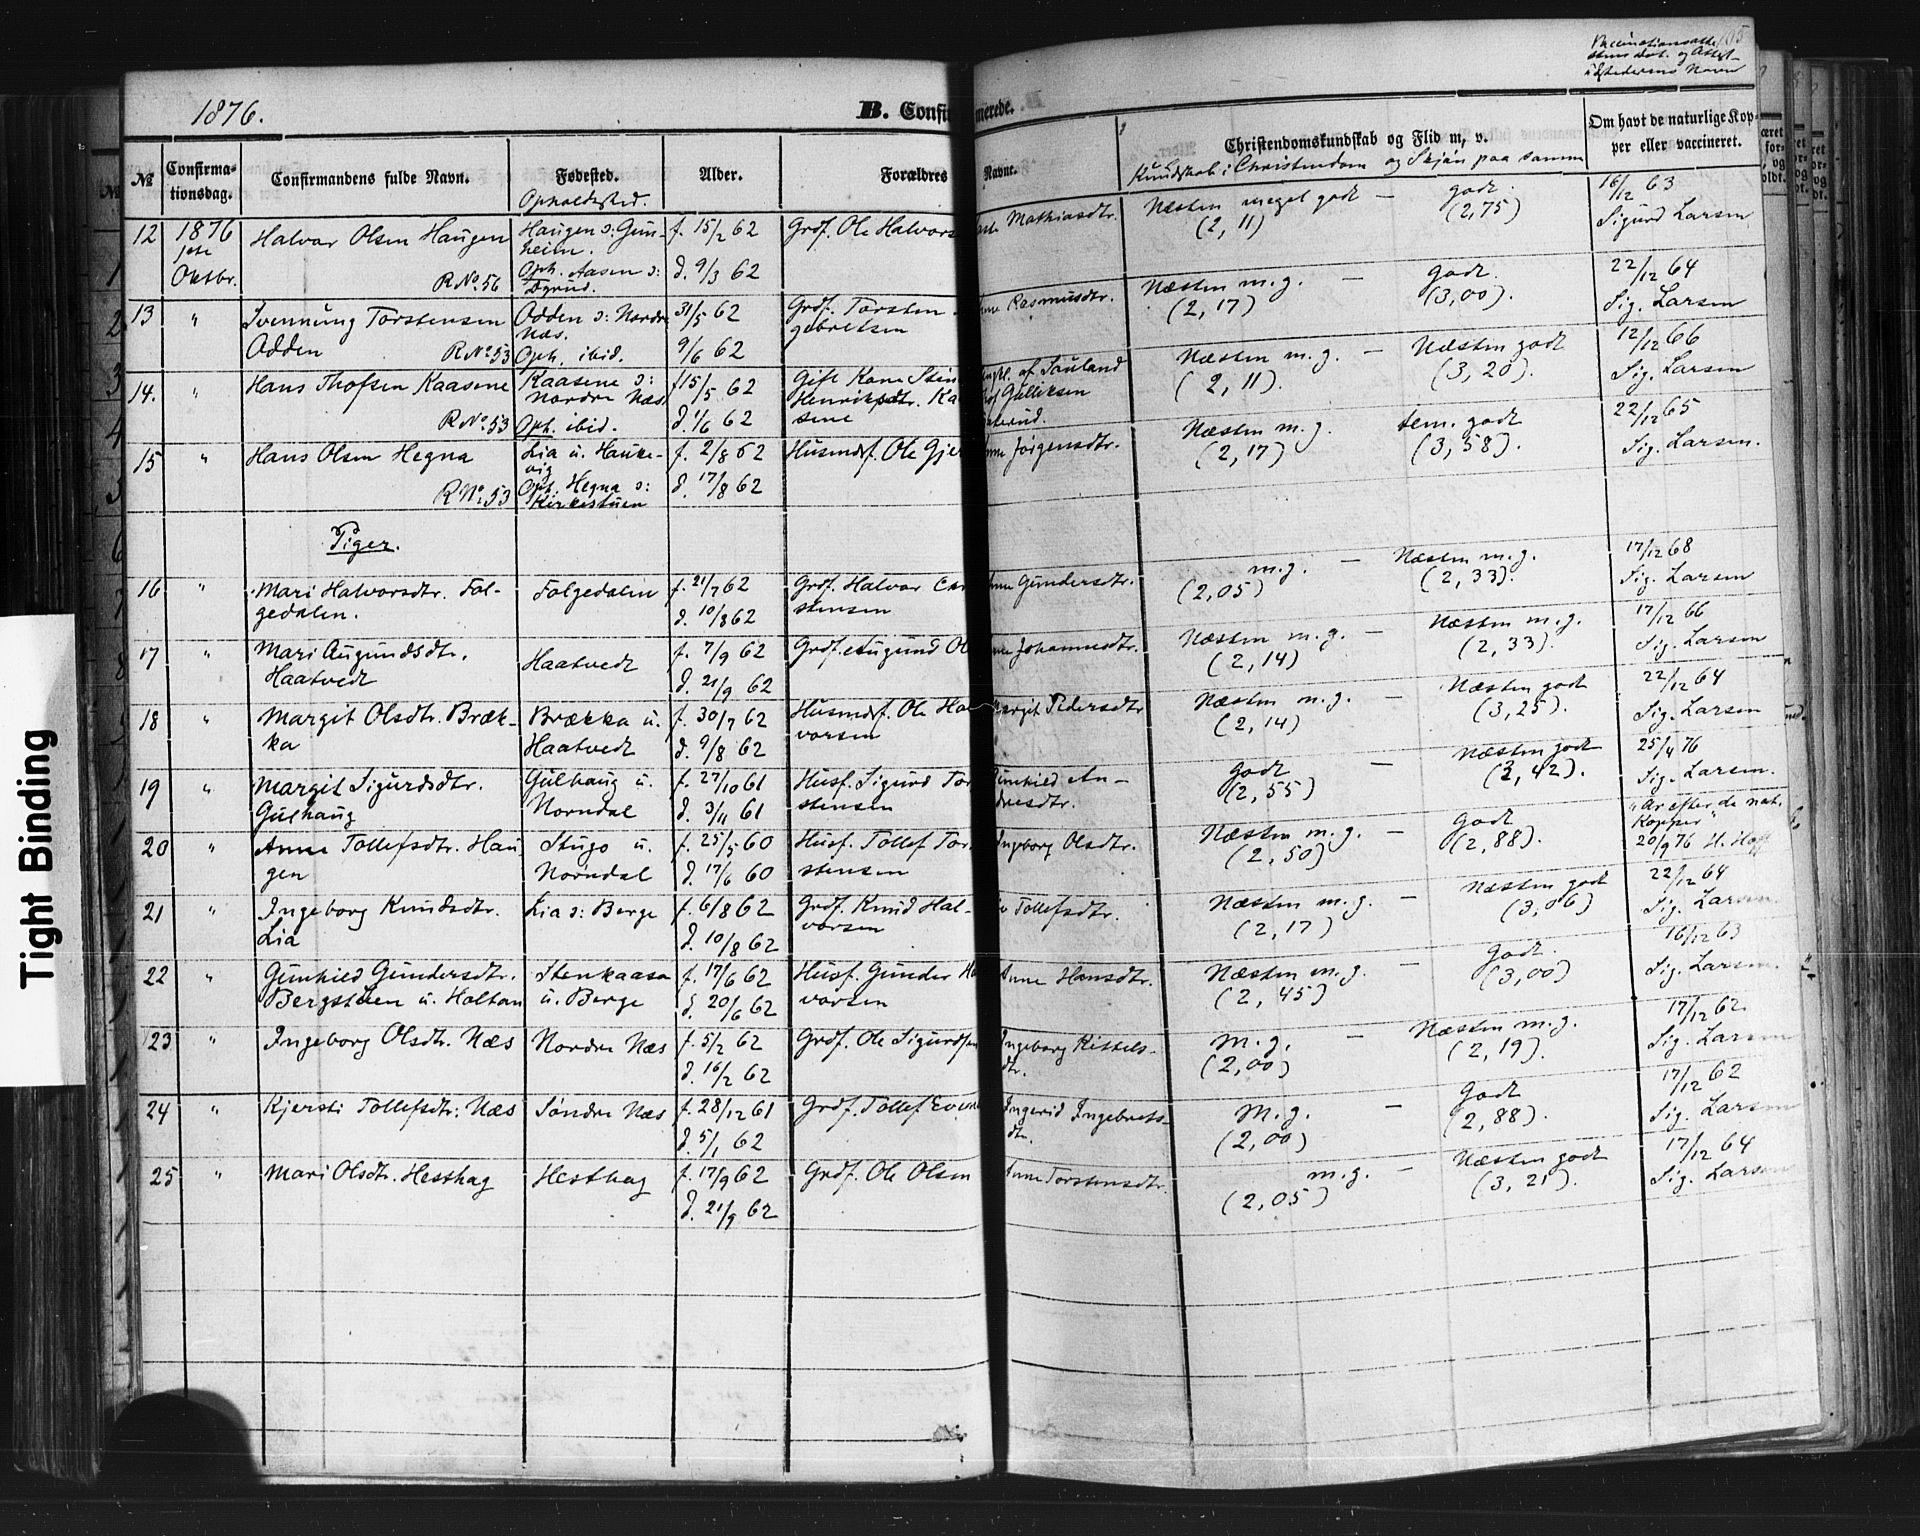 Tight Binding
1876.
B. Confirmerede.
Vaccinationsatte-
stens Dat. og Attest-
udstederens Navn
№ Confirma-
tionsdag. Confirmandens fulde Navn. Fødested. Alder. Forældres Navne. Christendomskundskab og Flid m. v. Om havt de naturlige Kop-
per eller vaccineret.
Opholdssted.
Kundskab i Christendom og Skjøn paa samme
12 1876 Halvar Olsen Haugen Haugen ɔ: Gun- f. 15/2 62 Grdf. Ole Halvors Mathiasdtr. Næsten meget godt — godt. 16/12 63
1ste heim. (2,11) (2,75) Sigurd Larsen
Oktbr. R No. 56 Oph. Aasen ɔ: d. 9/3 62
Øgrud.
13 " Ivennung Torstensen Odden ɔ: Nordre 31/5 62 Grdf. Torsten Rasmusdtr. Næsten m. g. — godt. 22/12 64
Odden R No. 53 Næs. gebretsen (2,17) (3,00). Sig. Larsen
Oph. ibid. 9/6 62
14. " Hans Thofsen Kaasene Kaasene ɔ: f 15/5 62 Gift Kone Næsten m. g. — Næsten godt 12/12 66
Nordre Næs Henriksdtr. Ka af Sauland (2,11). (3,20). Sig. Larsen
R No. 53 Oph. ibid. d. 1/6 62 sene Gulliksen
15 " Hans Olsen Hegna Lia u. Hauke- f. 2/8 62 Husmdsf. Ole Gje Jørgensdtr. Næsten m. g. tem. godt 22/12 65
vig (2,17) (3,58). Sig. Larsen.
R No. 53 Oph. Hegna ɔ: d. 17/8 62
Kirkestuen
Piger.
16 " Mari Halvorsdtr. Fol- Folgedalen f. 21/7 62 Grdf. Halvor Gundersdtr. m. g. — Næsten m. g. 17/12 68
gedalen. d. 10/8 62 stensen (2,05) (2,33). Sig. Larsen
17 " Mari Augundsdtr. Haatvedt f. 7/9 62 Grdf. Augund Ol Johannesdtr. Næsten m. g. — Næsten m. g. 17/12 66
Haatvedt d. 21/9 62 (2,14) (2,33). Sig. Larsen
18 " Margit Olsdtr. Bræk- Brækka u. f. 30/7 62 Husmdsf. Ole Hal Margit Pedersdtr Næsten m. g. — Næsten godt 22/12 64
ka Haatvedt d. 9/8 62 vorsen (2,14) (3,25). Sig. Larsen
19 " Margit Sigurdsdtr. Gulhaug u. f. 27/10 61 Husf. Sigurd Tor Gunhild An- godt — Næsten godt 25/4 76
Gulhaug Norndal d. 3/11 61 stensen dresdtr. (2,55) (3,42). Sig. Larsen.
20 " Anne Tollefsdtr. Hau Stugo u. f. 25/5 60 Husf. Tollef Tor Ingeborg Olsdtr. Næsten m. g. — Godt "Ar efter de nat.
gen Norndal d. 17/6 60 stensen (2,50) (2,88). Kopper"
20/9 76 H. Hoff
21 " Ingeborg Knudsdtr. Lia ɔ: Berge f. 6/8 62 Grdf. Knud Hal- Tollefsdtr. Næsten m. g. — Næsten godt 22/12 64
Lia d. 10/8 62 vorsen (2,17) (3,06) Sig. Larsen.
22 " Gunhild Gundersdtr. Stenkaasa f. 17/6 62 Husf. Gunder Ha Anne Hansdtr. Næsten m. g. — Godt 16/12 63
Bergstuen u. Holtan u. Berge d. 20/6 62 vorsen (2,45) (3,00) Sig. Larsen.
23 " Ingeborg Olsdtr. Næs Nordre Næs f. 5/2 62 Grdf. Ole Sigurdsen Ingeborg Kittels- M. g. — Næsten m. g. 17/12 62
d. 16/2 62 dtr. (2,00) (2,19). Sig. Larsen
24 " Kjersti Tollefsdtr. Næs Søndre Næs f. 28/12 61 Grdf. Tollef Even Ingerid Ingebrets- M. g. — Godt 17/12 62
d. 5/1 62 dtr. (2,00) (2,88). Sig. Larsen
25 " Mari Olsdtr. Hesthag Hesthag f. 17/9 62 Grdf. Ole Olsen Anne Torstensdtr. m. g. — Næsten godt 17/12 64
d. 21/9 62 (2,05) (3,21). Sig. Larsen